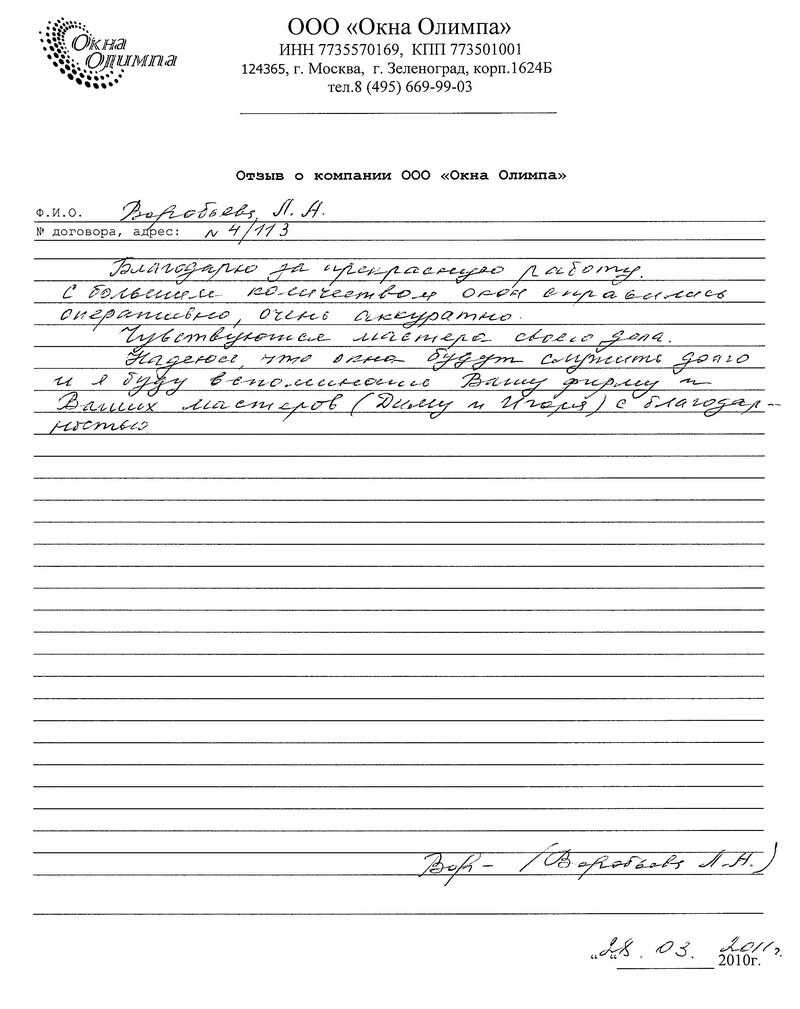 Окна
Олимпа
ООО «Окна Олимпа»
ИНН 7735570169, КПП 773501001
124365, г. Москва, г. Зеленоград, корп.1624Б
тел.8 (495) 669-99-03
Отзыв о компании ООО «Окна Олимпа»
Ф.И.О. Воробьева Л. Н.
№ договора, адрес: N 4/113
Благодарю за прекрасную работу.
С большим количеством окон справились
оперативно, очень аккуратно.
Чувствуются мастера своего дела.
Надеюсь, что окна будут служить долго
и я буду вспоминать Вашу фирму и
Ваших мастеров (Диму и Игоря) с благодар-
ностью
Вор- (Воробьева Л.Н.)
„28„. 03. 2011г.
2010г.